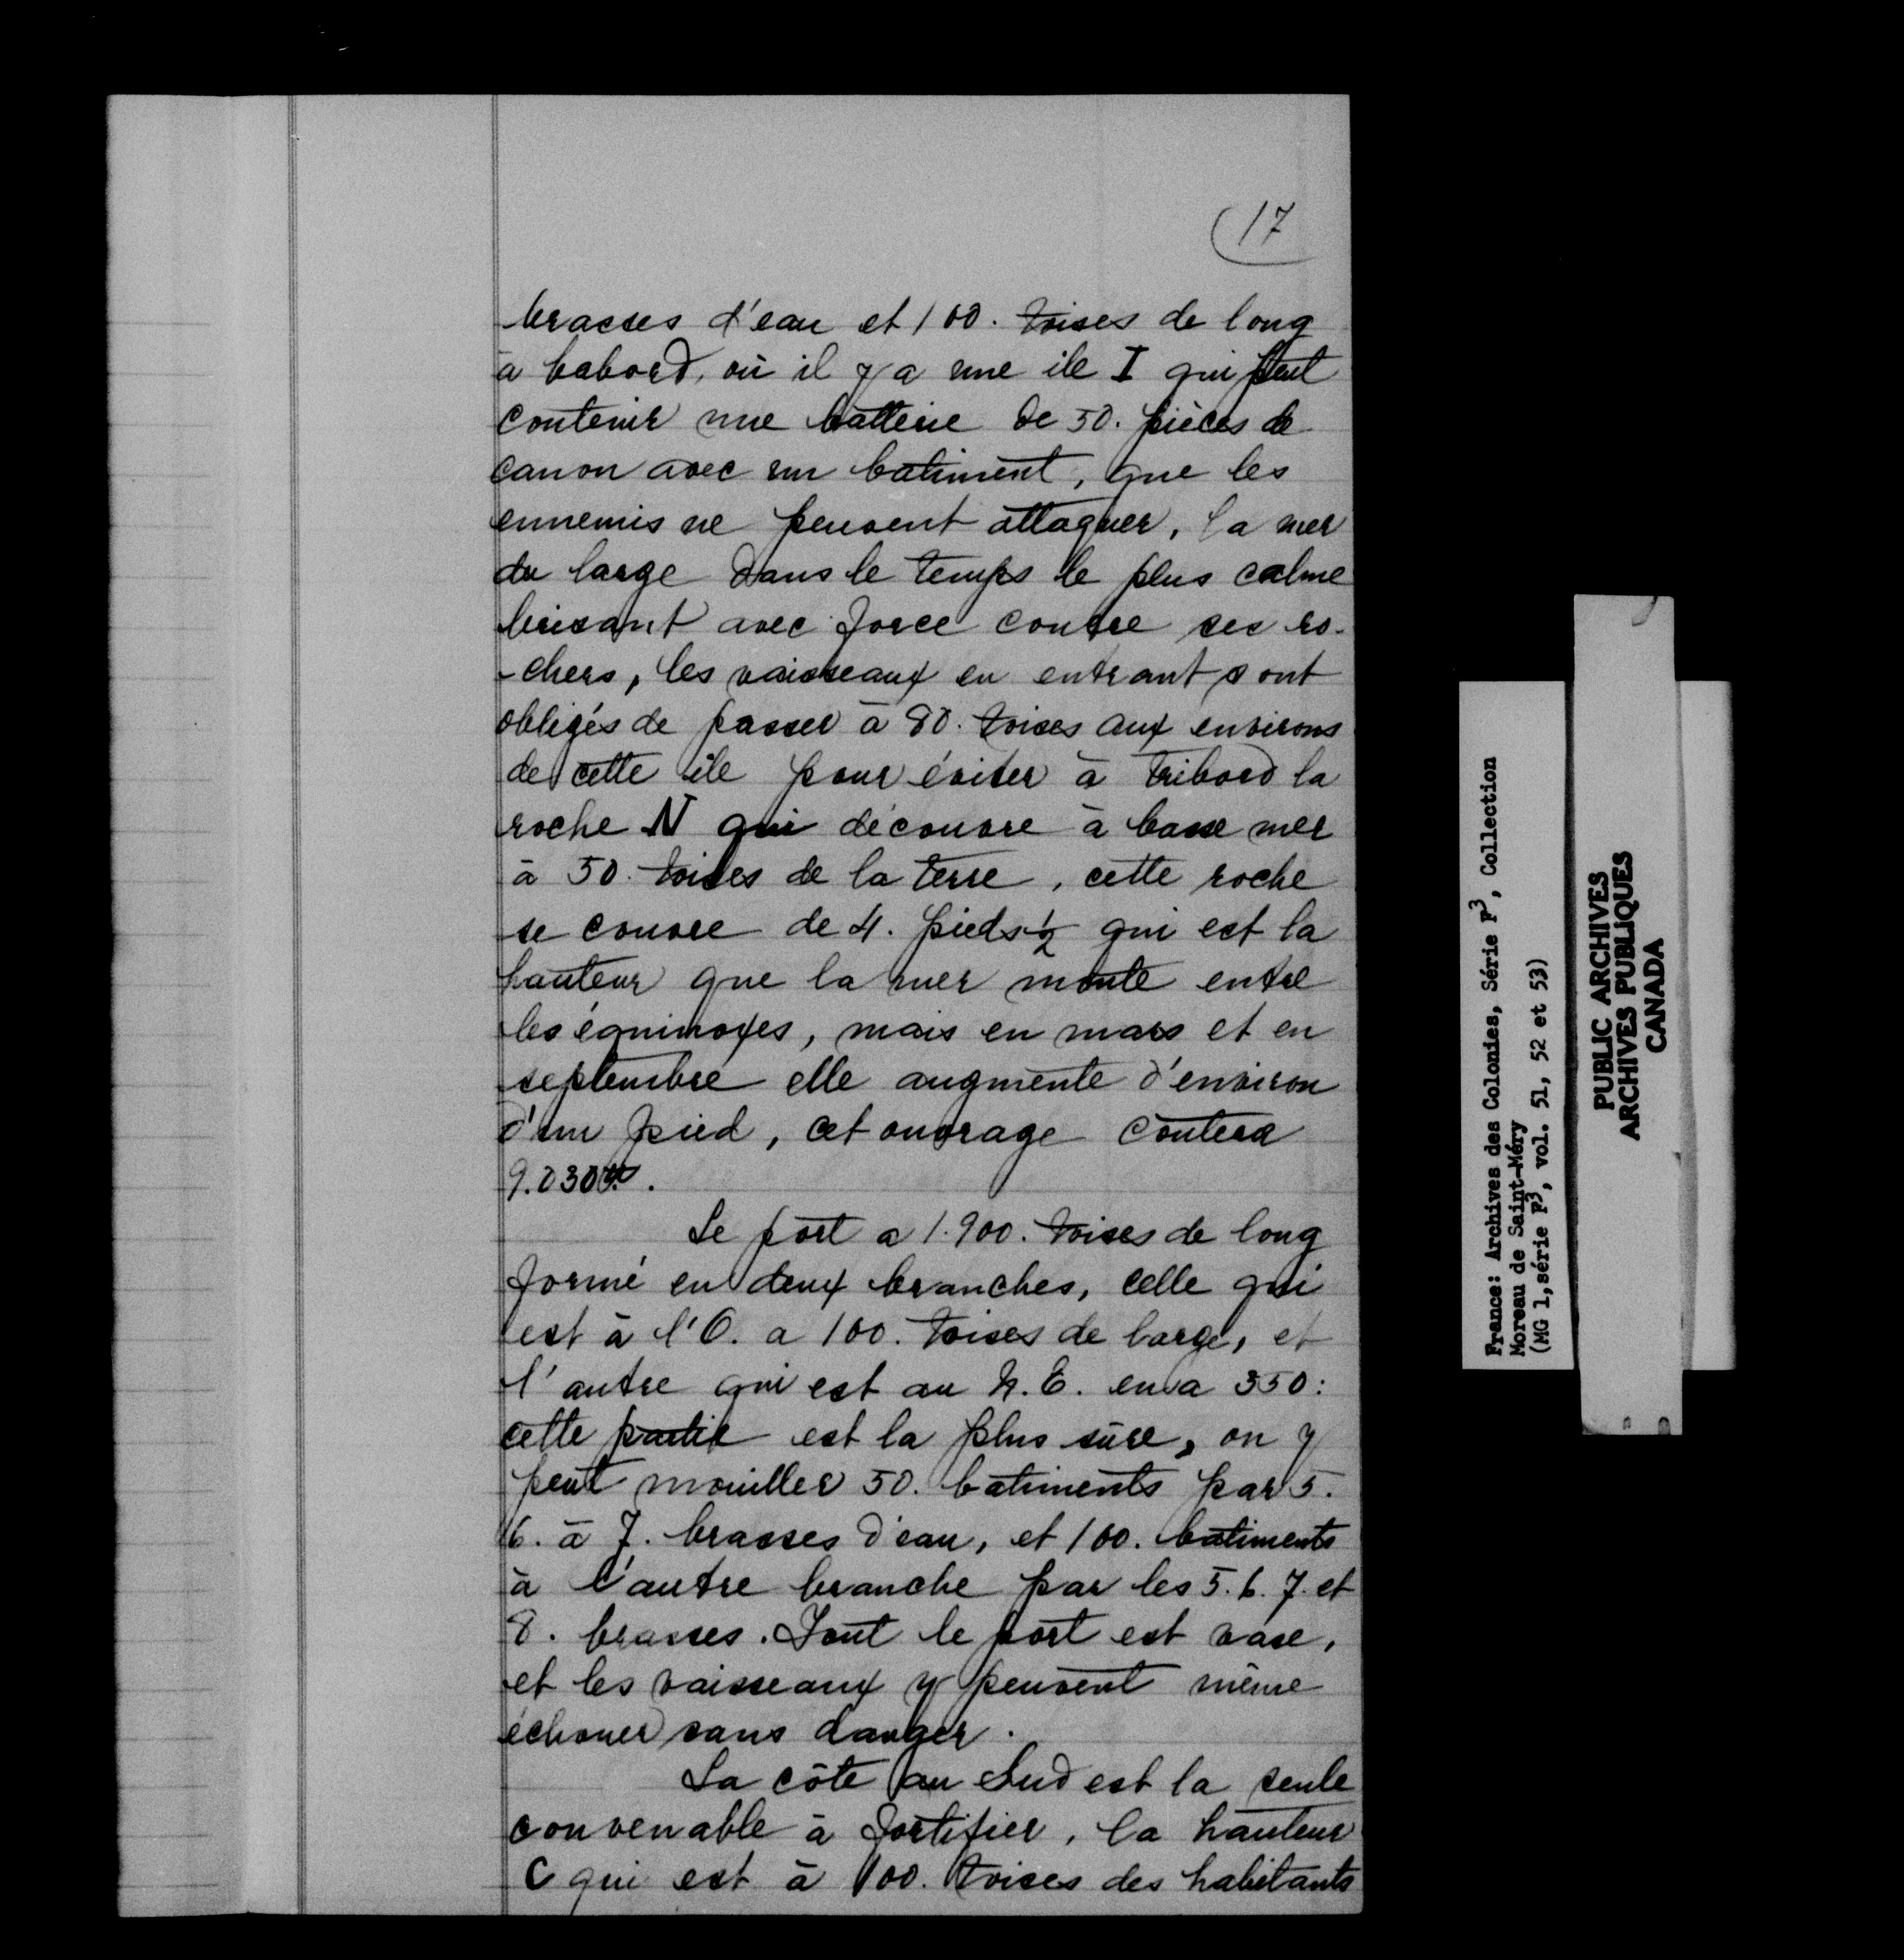 17
brasses d'eau et 100. toises de long
à babord, où il y a une ile I qui peut
contenir une batterie de 50. pièces de
canon avec un batiment, que les
ennemis ne peuvent attaquer, la mer
du large dans le temps le plus calme
brisant avec force contre ses ro-
-chers, les vaisseaux en entrant sont
obligés de passer à 80. toises aux environs
de cette ile pour éviter à tribord la
roche N qui découvre à basse mer
à 50. toises de la terre, cette roche
se couvre de 4. pieds ½ qui est la
hauteur que la mer monte entre
les équinoxes, mais en mars et en
septembre elle augmente d'environ
d'un pied, cet ouvrage coutera
9.030#.
Le port a 1.900. toises de long
formé en deux branches, celle qui
est à l'O. a 100. toises de large, et
l'autre qui est au N.E. en a 350:
cette partie est la plus sûre, on y
peut mouiller 50. batiments par 5.
6. à 7. brasses d'eau, et 100. batiments
à l'autre branche par les 5. 6. 7. et
8. brasses. Tout le port est vase,
et les vaisseaux y peuvent même
échouer sans danger.
La côte au Sud est la seule
convenable à fortifier, la hauteur
C qui est à 100. toises des habitants
France: Archives des Colonies, Série F3, Collection
Moreau de Saint-Méry
(MG 1, série F3, vol. 51, 52 et 53)
PUBLIC ARCHIVES
ARCHIVES PUBLIQUES
CANADA